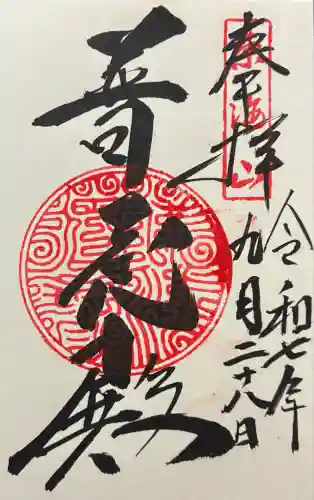 奉拝
東海山
令和七年
九月二十八日
普
殿